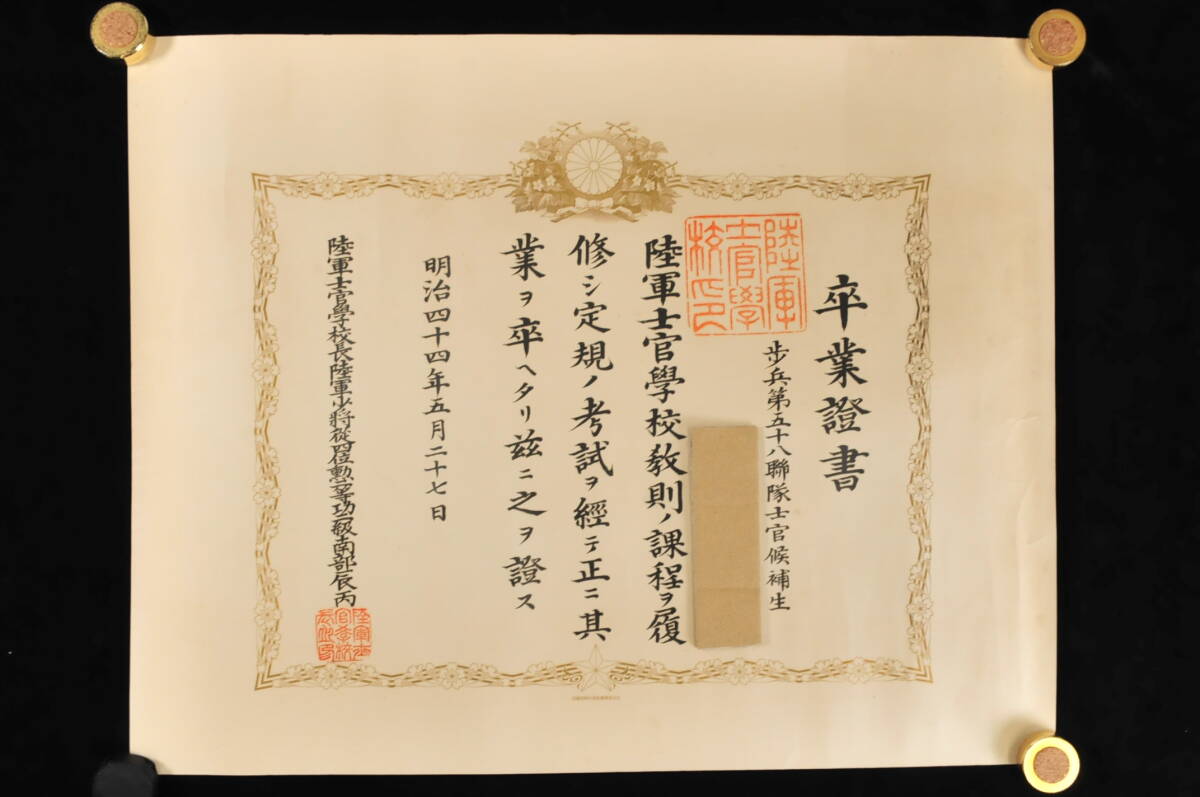 卒業證書
陸軍士官學校印
歩兵第五十八聯隊士官候補生
陸軍士官學校教則ノ課程ヲ履
修シ定規ノ考試ヲ經テ正ニ其
業ヲ卒ヘタリ茲ニ之ヲ證ス
明治四十四年五月二十七日
陸軍士官學校長陸軍少將從四位勲二等功三級南部辰丙